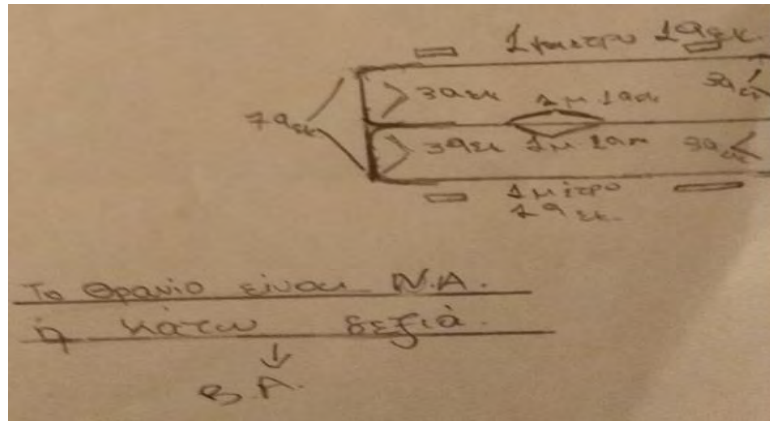 1 μέτρο 19 εκ.
39 εκ 1 μ 19 εκ 39 εκ
79 εκ
39 εκ 1 μ 19 εκ 39 εκ
1 μέτρο
19 εκ.
Το θρανίο είναι Ν.Α.
ή κάτω δεξιά.
Β.Α.